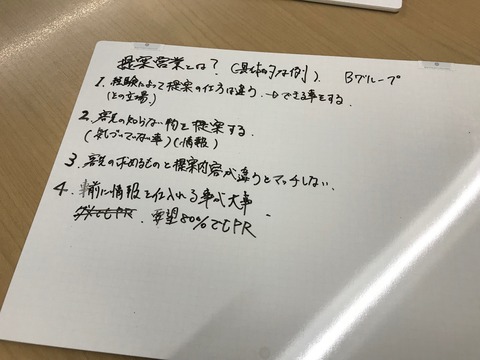 提案営業とは?(具体的な例). Bグループ
1. 経験によって提案の仕方は違う. →できる事をする.
(との立場.)
2. 客先の知らない物を提案する.
(気づいてない事)(情報)
3. 客先の求めるものと提案内容が違うとマッチしない.
4. 事前に情報を仕入れる事が大事.
ダメでもPR. 要望80%でもPR